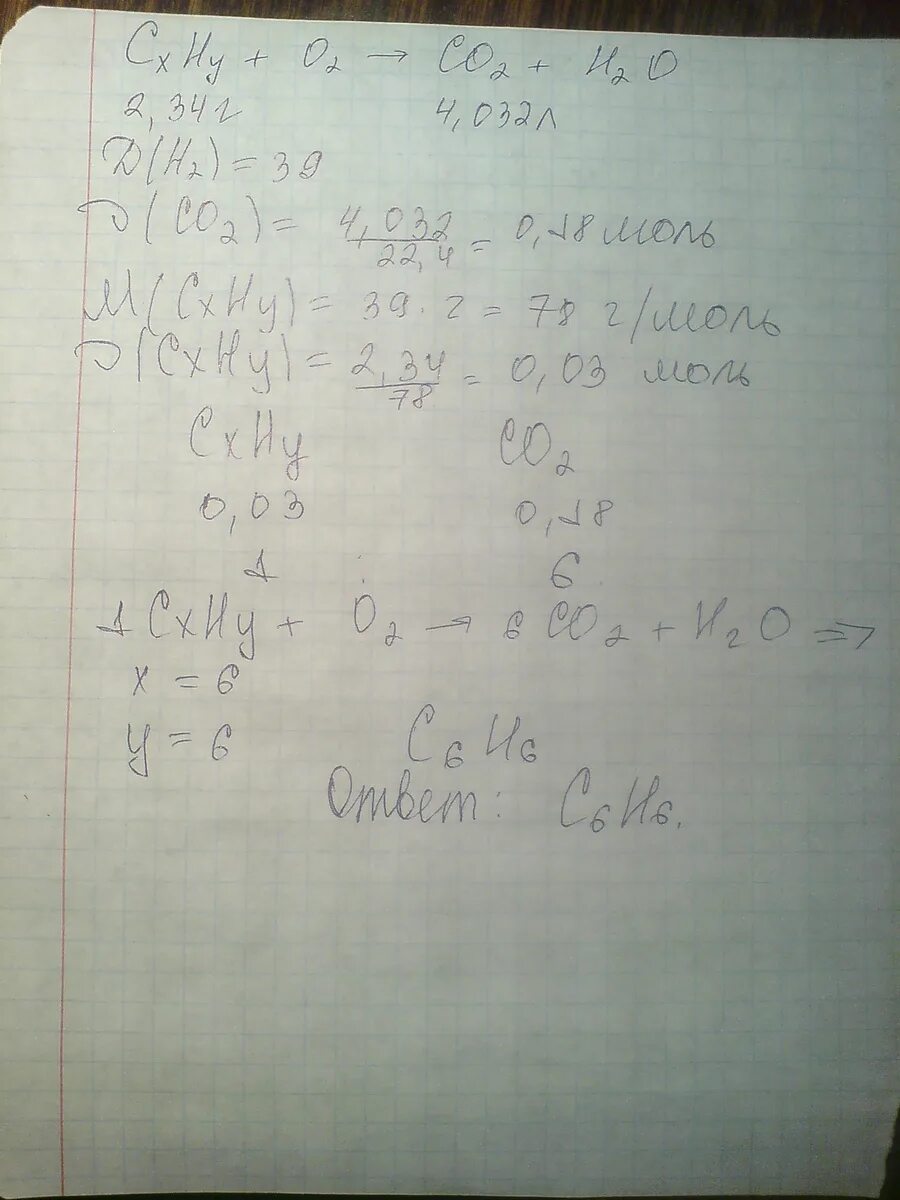 CxHy + O₂ → CO₂ + H₂O
2,34г 4,032л
D(H₂) = 39
ν(CO₂) = 4,032/22,4 = 0,18 моль
M(CxHy) = 39 · 2 = 78 г/моль
ν(CxHy) = 2,34/78 = 0,03 моль
CxHy CO₂
0,03 0,18
1 : 6
1 CxHy + O₂ → 6 CO₂ + H₂O =>
x = 6
y = 6 C₆H₆
Ответ: C₆H₆.